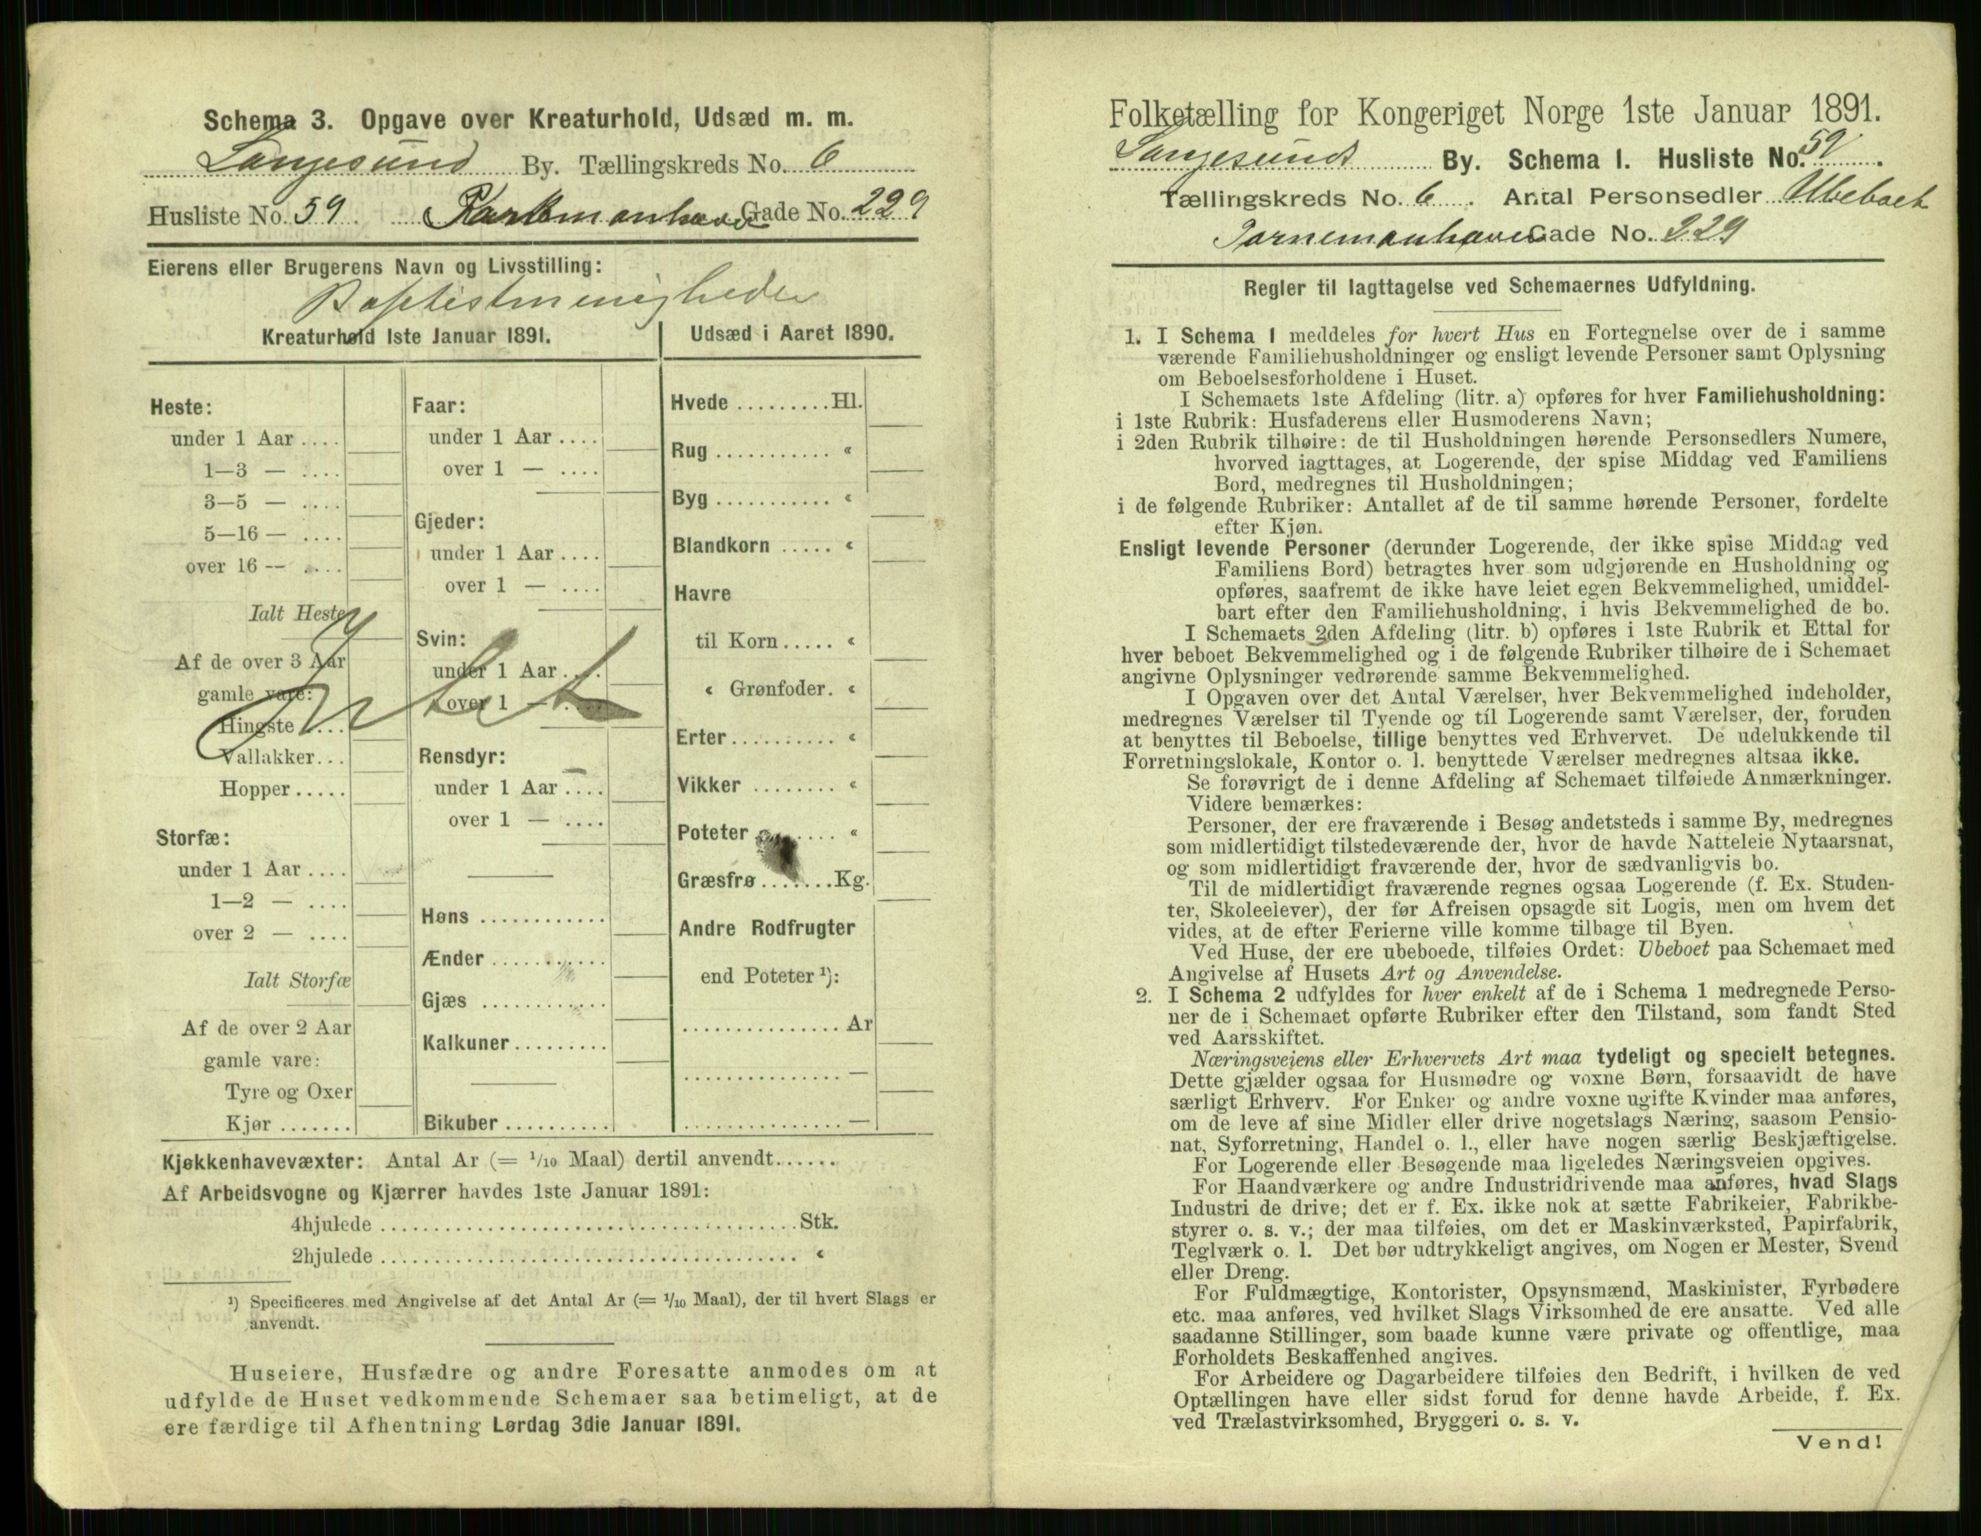 Schema 3. Opgave over Kreaturhold, Udsæd m. m.
Langesund By. Tællingskreds No. 6
Husliste No. 59 Gade No. 229
Eierens eller Brugerens Navn og Livsstilling:
Baptistmenigheden
Kreaturhold 1ste Januar 1891.
Heste:
under 1 Aar ....
1—3 — ....
3—5 — ....
5—16 — ....
over 16 — ....
Ialt Heste
Af de over 3 Aar
gamle vare:
Hingste ....
Vallakker...
Hopper.....
Storfæ:
under 1 Aar ....
1—2 — ....
over 2 — ....
Ialt Storfæ
Af de over 2 Aar
gamle vare:
Tyre og Oxer
Kjør .......
Intet
Faar:
under 1 Aar ....
over 1 — ....
Gjeder:
under 1 Aar ....
over 1 — ....
Svin:
under 1 Aar ....
over 1 — ....
Rensdyr:
under 1 Aar ....
over 1 — ....
Høns ............
Ænder ...........
Gjæs ............
Kalkuner.........
Bikuber ..........
Udsæd i Aaret 1890.
Hvede .........Hl.
Rug ........... «
Byg ........... «
Blandkorn ..... «
Havre
til Korn..... «
« Grønfoder. «
Erter.......... «
Vikker ........ «
Poteter ....... «
Græsfrø.......Kg.
Andre Rodfrugter
end Poteter ¹):
...............Ar
............... —
............... —
Kjøkkenhavevæxter: Antal Ar (= 1/10 Maal) dertil anvendt......
Af Arbeidsvogne og Kjærrer havdes 1ste Januar 1891:
4hjulede ......................................Stk.
2hjulede ...................................... «
¹) Specificeres med Angivelse af det Antal Ar (= 1/10 Maal), der til hvert Slags er
anvendt.
Huseiere, Husfædre og andre Foresatte anmodes om at
udfylde de Huset vedkommende Schemaer saa betimeligt, at de
ere færdige til Afhentning Lørdag 3die Januar 1891.
Folketælling for Kongeriget Norge 1ste Januar 1891.
Langesunds By. Schema 1. Husliste No. 59.
Tællingskreds No. 6. Antal Personsedler Ubeboet
Gade No. 229
Regler til Iagttagelse ved Schemaernes Udfyldning.
1. I Schema 1 meddeles for hvert Hus en Fortegnelse over de i samme
værende Familiehusholdninger og ensligt levende Personer samt Oplysning
om Beboelsesforholdene i Huset.
I Schemaets 1ste Afdeling (litr. a) opføres for hver Familiehusholdning:
i 1ste Rubrik: Husfaderens eller Husmoderens Navn;
i 2den Rubrik tilhøire: de til Husholdningen hørende Personsedlers Numere,
hvorved iagttages, at Logerende, der spise Middag ved Familiens
Bord, medregnes til Husholdningen;
i de følgende Rubriker: Antallet af de til samme hørende Personer, fordelte
efter Kjøn.
Ensligt levende Personer (derunder Logerende, der ikke spise Middag ved
Familiens Bord) betragtes hver som udgjørende en Husholdning og
opføres, saafremt de ikke have leiet egen Bekvemmelighed, umiddel-
bart efter den Familiehusholdning, i hvis Bekvemmelighed de bo.
I Schemaets 2den Afdeling (litr. b) opføres i 1ste Rubrik et Ettal for
hver beboet Bekvemmelighed og i de følgende Rubriker tilhøire de i Schemaet
angivne Oplysninger vedrørende samme Bekvemmelighed.
I Opgaven over det Antal Værelser, hver Bekvemmelighed indeholder,
medregnes Værelser til Tyende og til Logerende samt Værelser, der, foruden
at benyttes til Beboelse, tillige benyttes ved Erhvervet. De udelukkende til
Forretningslokale, Kontor o. l. benyttede Værelser medregnes altsaa ikke.
Se forøvrigt de i denne Afdeling af Schemaet tilføiede Anmærkninger.
Videre bemærkes:
Personer, der ere fraværende i Besøg andetsteds i samme By, medregnes
som midlertidigt tilstedeværende der, hvor de havde Natteleie Nytaarsnat,
og som midlertidigt fraværende der, hvor de sædvanligvis bo.
Til de midlertidigt fraværende regnes ogsaa Logerende (f. Ex. Studen-
ter, Skoleelever), der før Afreisen opsagde sit Logis, men om hvem det
vides, at de efter Ferierne ville komme tilbage til Byen.
Ved Huse, der ere ubeboede, tilføies Ordet: Ubeboet paa Schemaet med
Angivelse af Husets Art og Anvendelse.
2. I Schema 2 udfyldes for hver enkelt af de i Schema 1 medregnede Perso-
ner de i Schemaet opførte Rubriker efter den Tilstand, som fandt Sted
ved Aarsskiftet.
Næringsveiens eller Erhvervets Art maa tydeligt og specielt betegnes.
Dette gjælder ogsaa for Husmødre og voxne Børn, forsaavidt de have
særligt Erhverv. For Enker og andre voxne ugifte Kvinder maa anføres,
om de leve af sine Midler eller drive nogetslags Næring, saasom Pensio-
nat, Syforretning, Handel o. l., eller have nogen særlig Beskjæftigelse.
For Logerende eller Besøgende maa ligeledes Næringsveien opgives.
For Haandværkere og andre Industridrivende maa anføres, hvad Slags
Industri de drive; det er f. Ex. ikke nok at sætte Fabrikeier, Fabrikbe-
styrer o. s. v.; der maa tilføies, om det er Maskinværksted, Papirfabrik,
Teglværk o. l. Det bør udtrykkeligt angives, om Nogen er Mester, Svend
eller Dreng.
For Fuldmægtige, Kontorister, Opsynsmænd, Maskinister, Fyrbødere
etc. maa anføres, ved hvilket Slags Virksomhed de ere ansatte. Ved alle
saadanne Stillinger, som baade kunne være private og offentlige, maa
Forholdets Beskaffenhed angives.
For Arbeidere og Dagarbeidere tilføies den Bedrift, i hvilken de ved
Optællingen have eller sidst forud for denne havde Arbeide, f. Ex.
ved Trælastvirksomhed, Bryggeri o. s. v.
Vend!